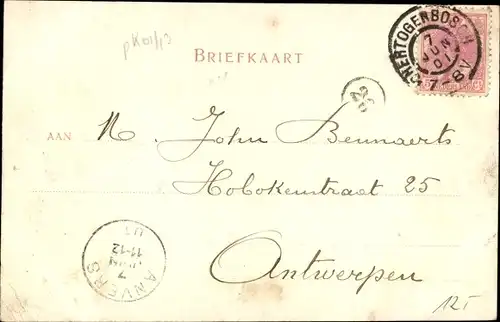 pk01/13
BRIEFKAART
'SHERTOGENBOSCH
7 JUN 01
7-8V
26
AAN M. John Bennaerts
Hobokenstraat 25
Antwerpen
ANVERS
7 JUIN
11-12
01
12.-